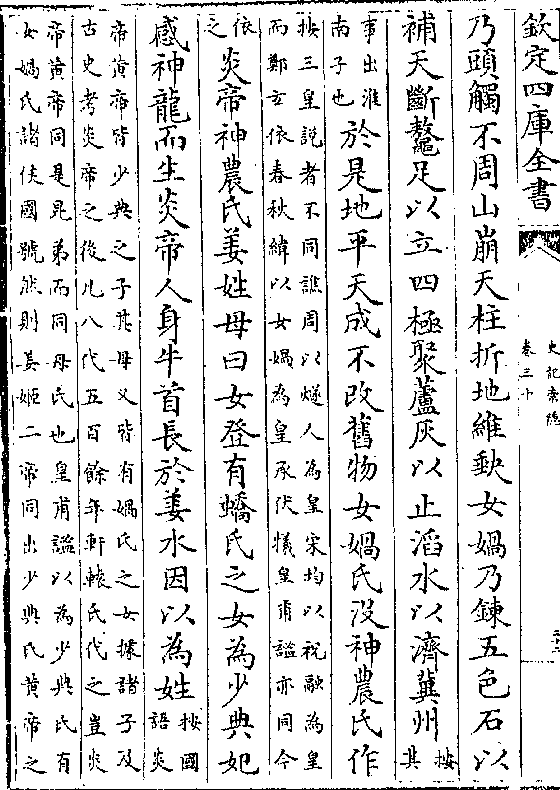 欽定四庫全書
史記索隱
卷三十
乃頭觸不周山崩天柱折地維缺女媧乃鍊五色石以
補天斷鼇足以立四極聚蘆灰以止滔水以濟冀州
按
其
事出淮
南子也
於是地平天成不改舊物女媧氏沒神農氏作
按三皇說者不同譙周以燧人為皇宋均以祝融為皇
而鄭玄依春秋緯以女媧為皇承伏犧皇甫謐亦同今
依
之
炎帝神農氏姜姓母曰女登有蟜氏之女為少典妃
感神龍而生炎帝人身牛首長於姜水因以為姓
按國
語炎
帝黃帝皆少典之子其母又皆有媧氏之女據諸子及
古史考炎帝之後凡八代五百餘年軒轅氏代之豈炎
帝黃帝同是昆弟而同母氏也皇甫謐以為少典氏有
女媧氏諸侯國號然則姜姬二帝同出少典氏黃帝之